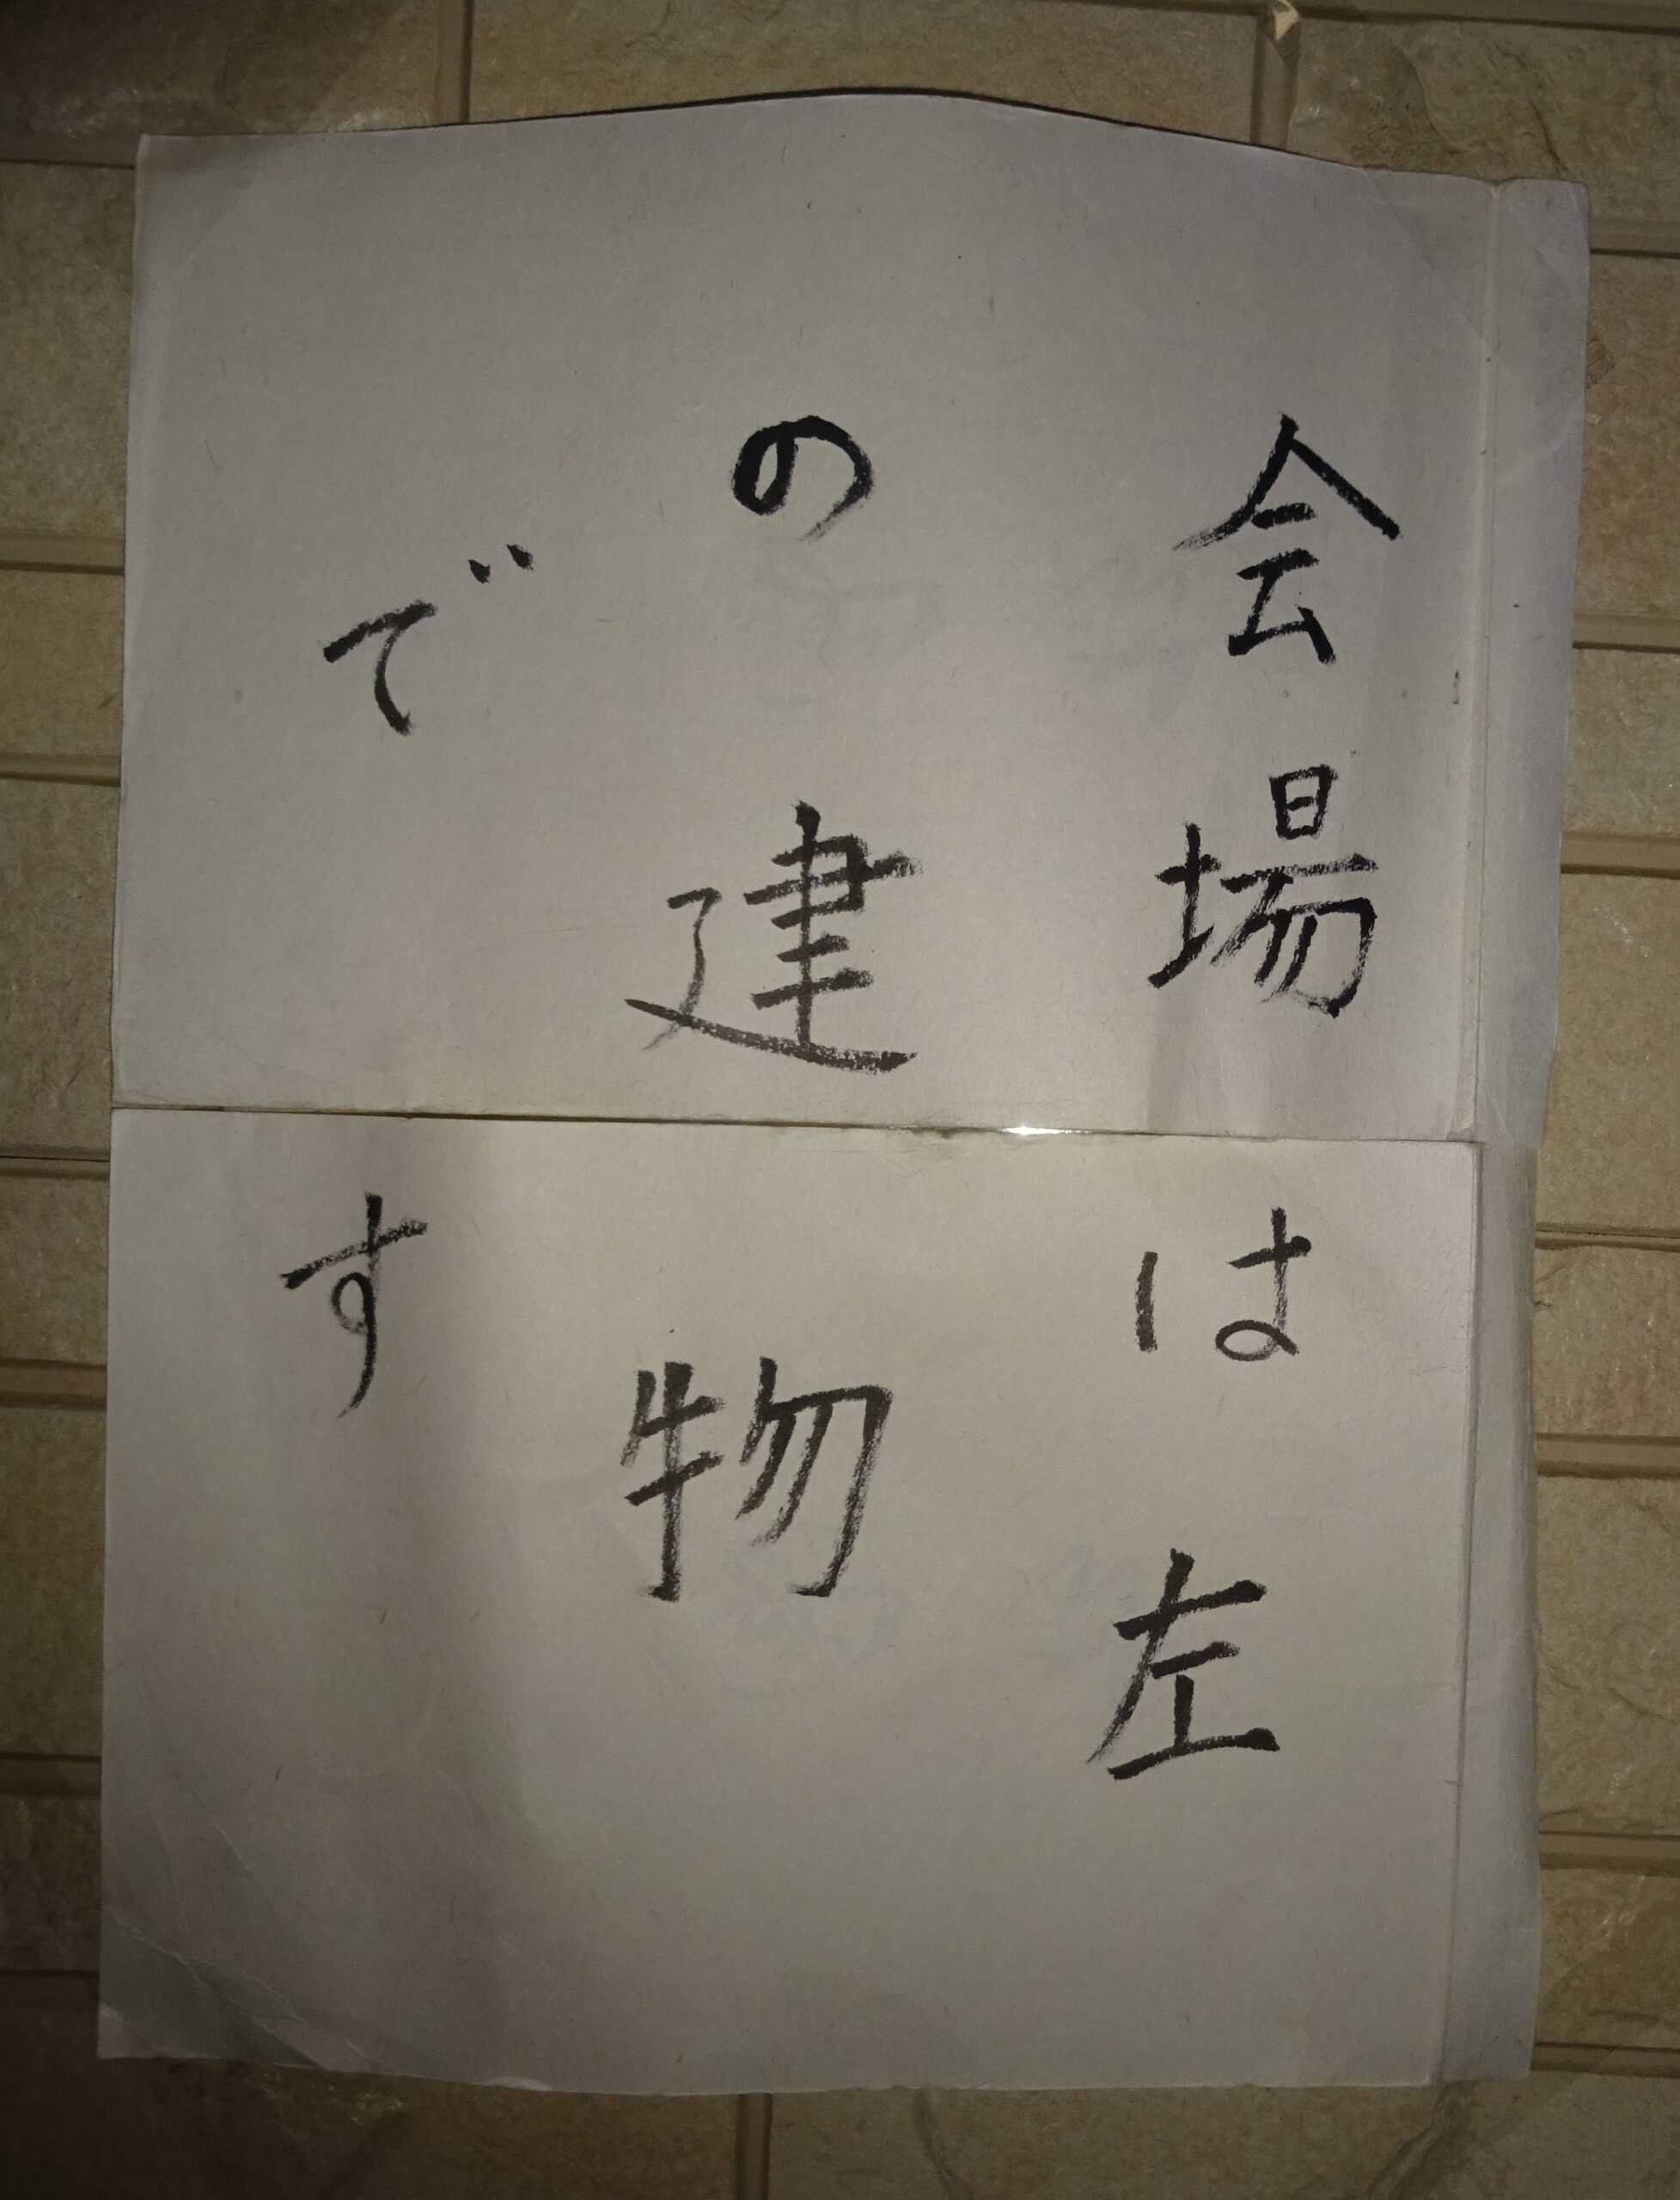 会場は左
の建物
です